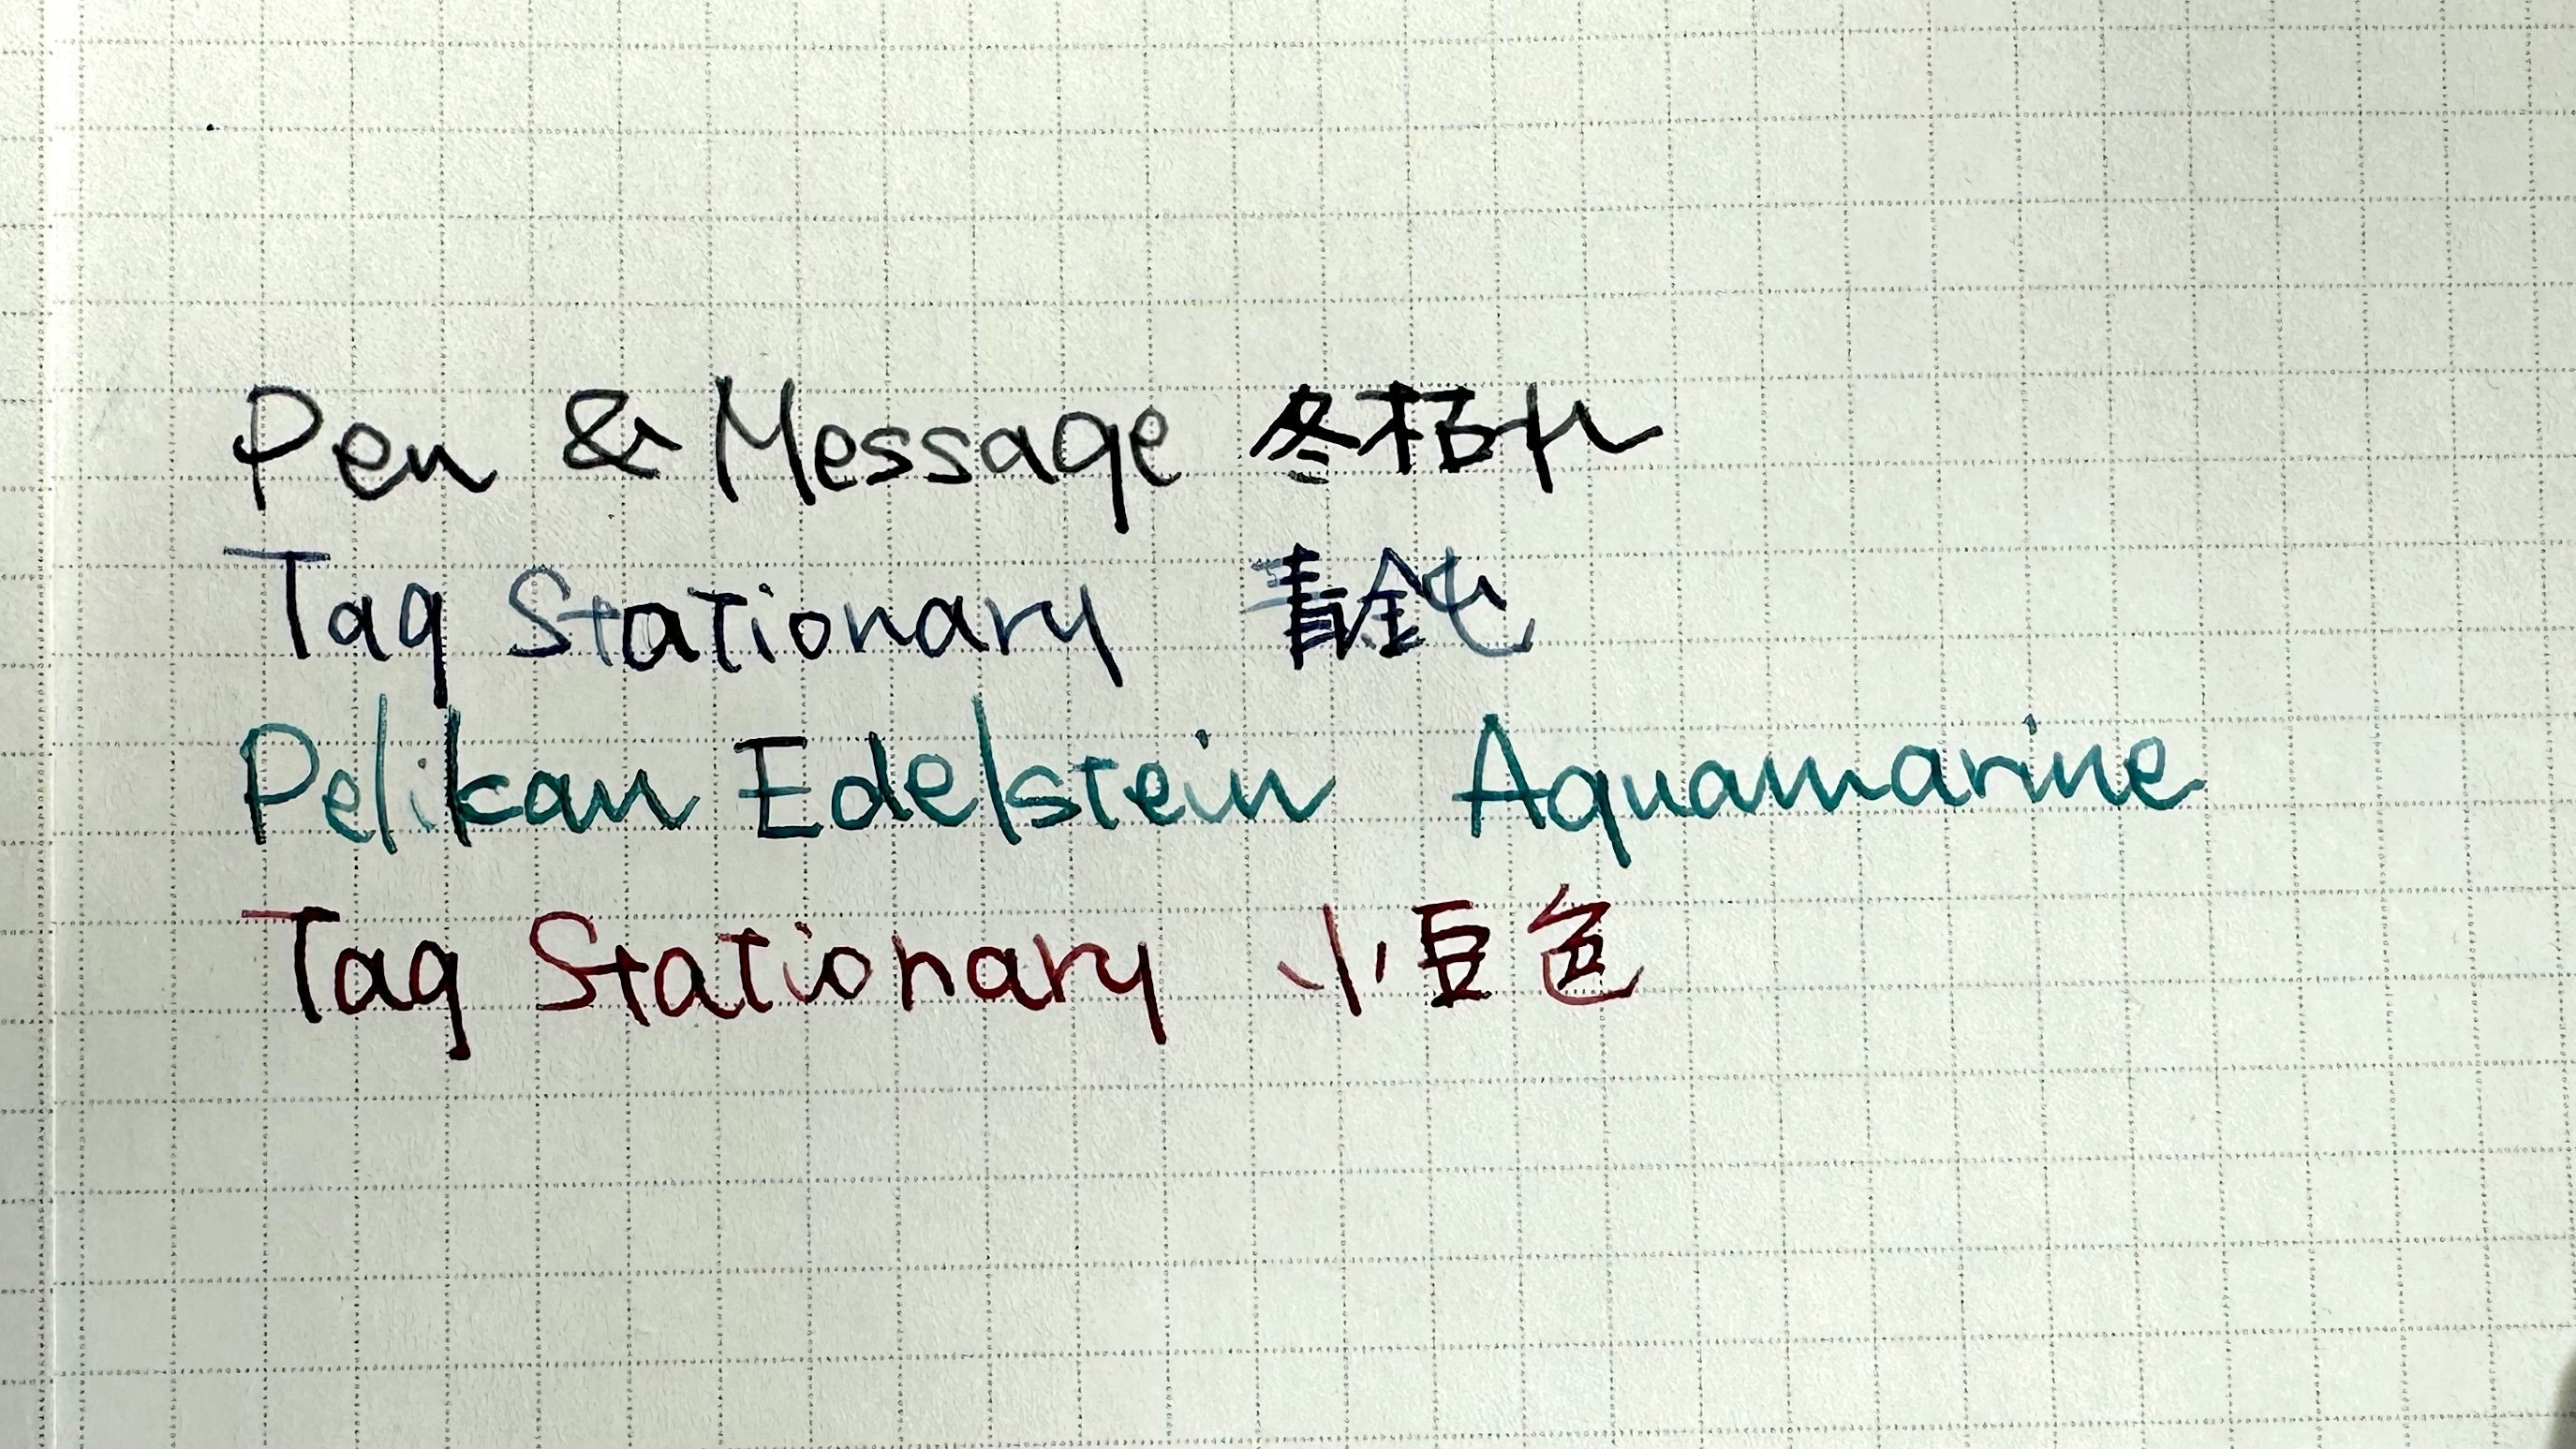 Pen & Message 冬枯れ
Tag Stationary 青鈍
Pelikan Edelstein Aquamarine
Tag Stationary 小豆色